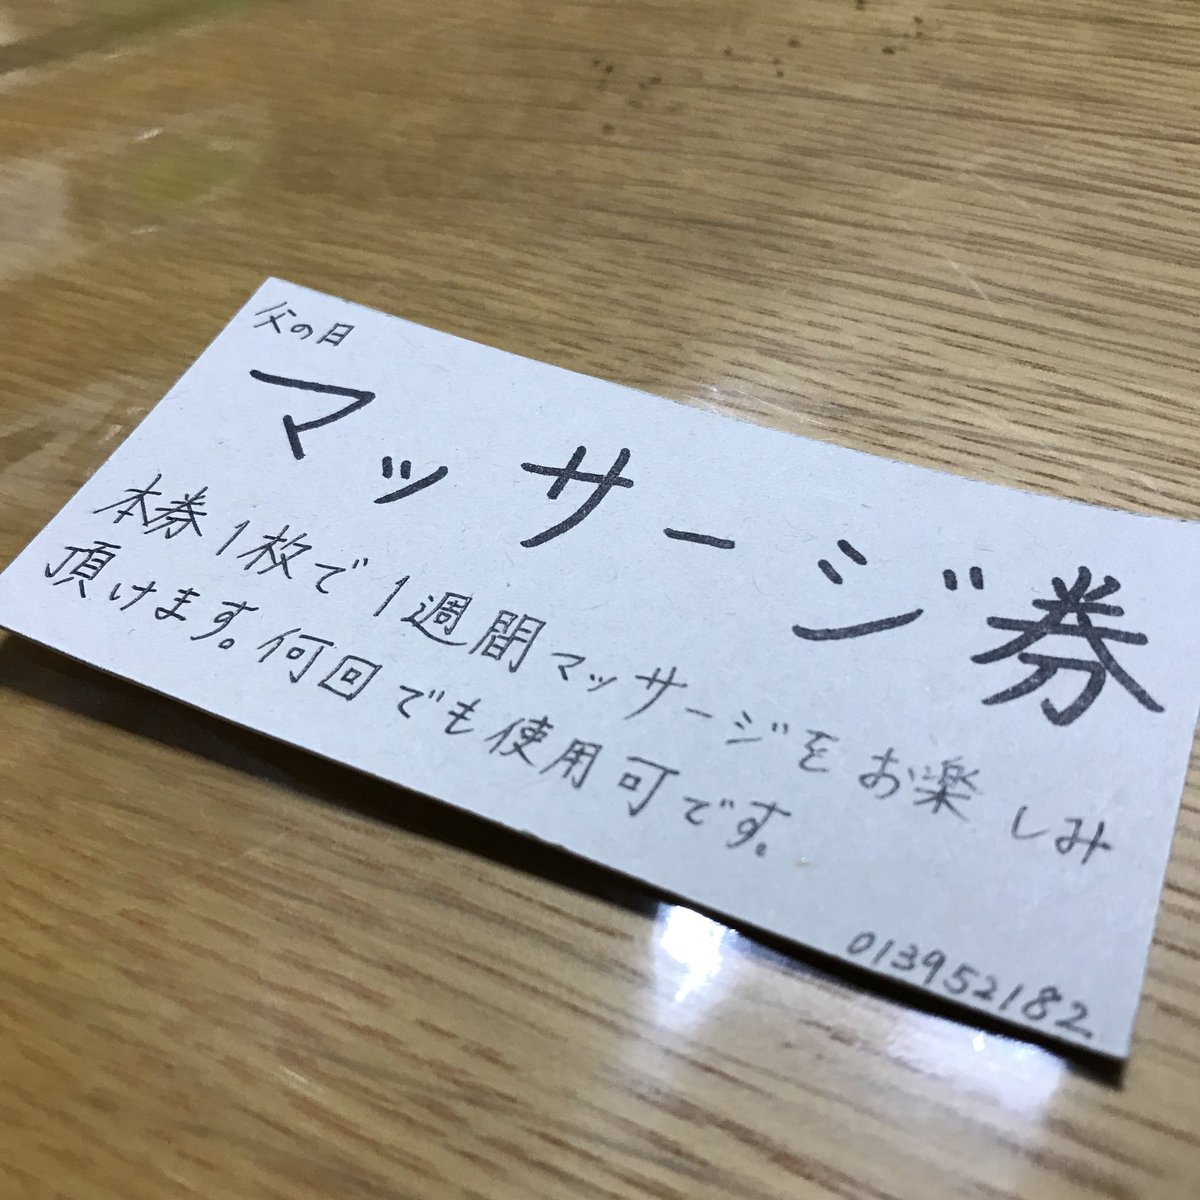 父の日
マッサージ券
本券1枚で1週間マッサージをお楽しみ
頂けます。何回でも使用可です。
013952182